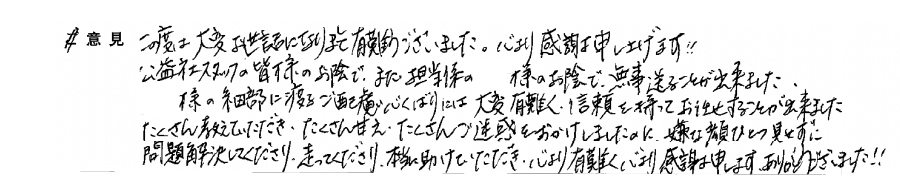 # 意見 この度は大変お世話になりまして有難うございました。心より感謝を申し上げます!!
公益社スタッフの皆様のお陰で、また担当係の 様のお陰で、無事送ることが出来ました、
様の細部に渡るご配慮、心くばりには大変有難く、信頼を持ってお任せすることが出来ました
たくさん考えていただき、たくさん甘え、たくさんご迷惑をおかけしましたのに、嫌な顔ひとつ見せずに
問題解決してくださり、走ってくださり、本当に助けていただき、心より有難く心より感謝を申します。ありがとうございました!!